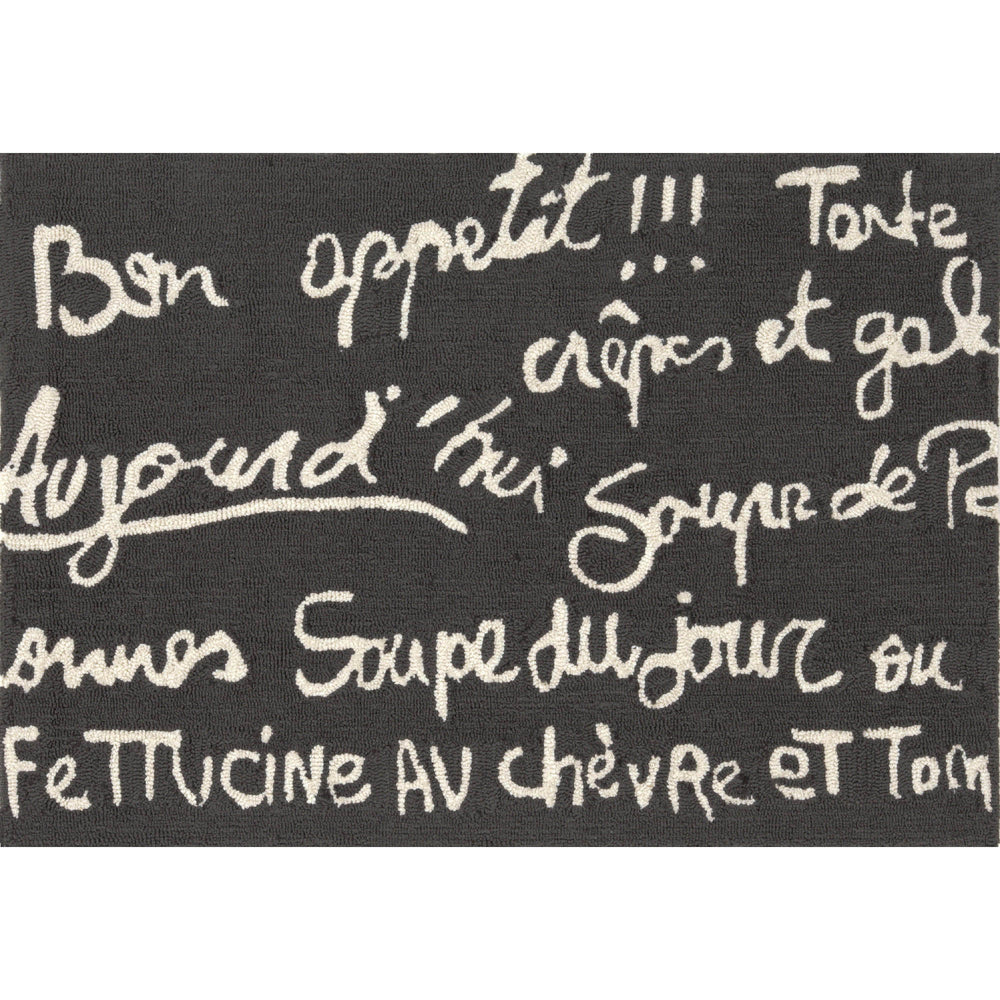 Bon appetit!!! Tarte
crêpes et gal
Aujourd'hui Soupe de Po
onnes Soupe du jour ou
FeTTUCiNE AU chèvRe eT Tom